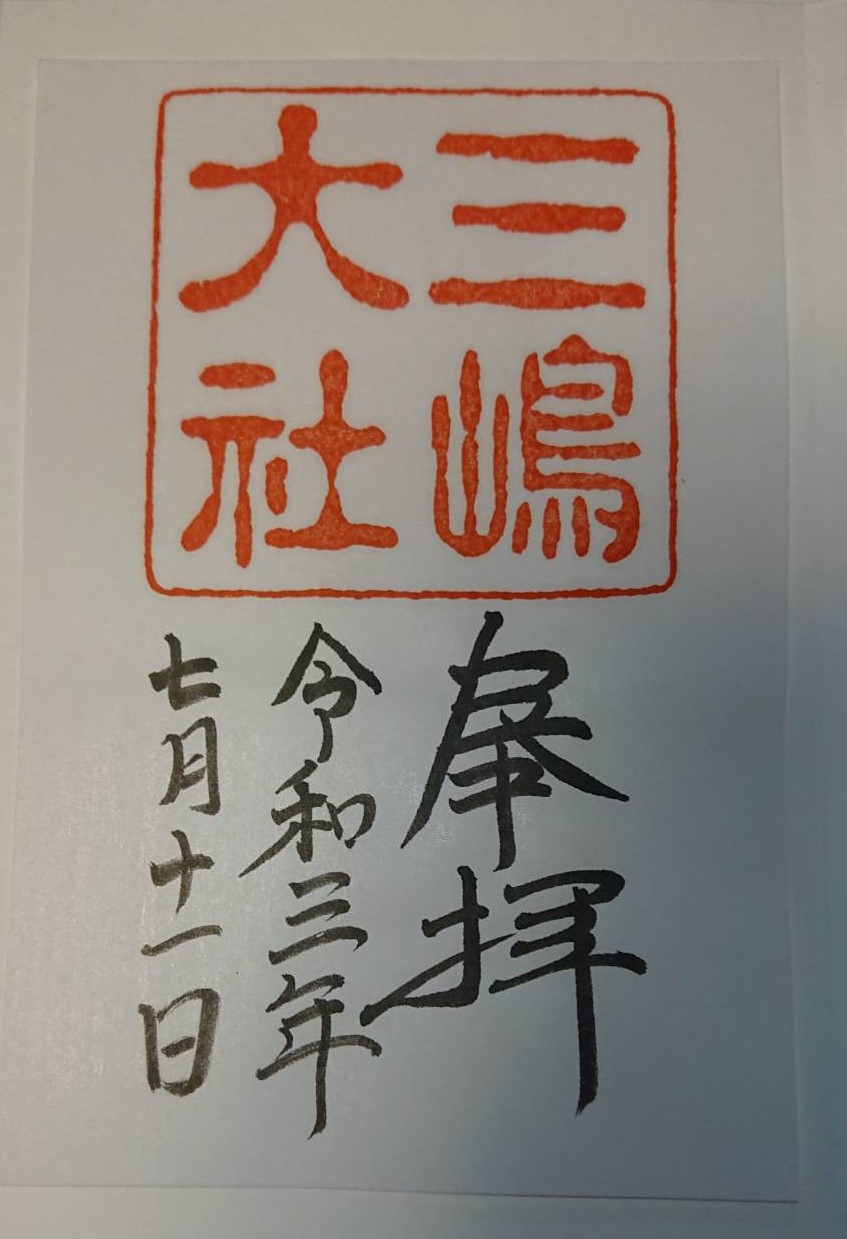 三嶋
大社
奉拝
令和三年
七月十一日